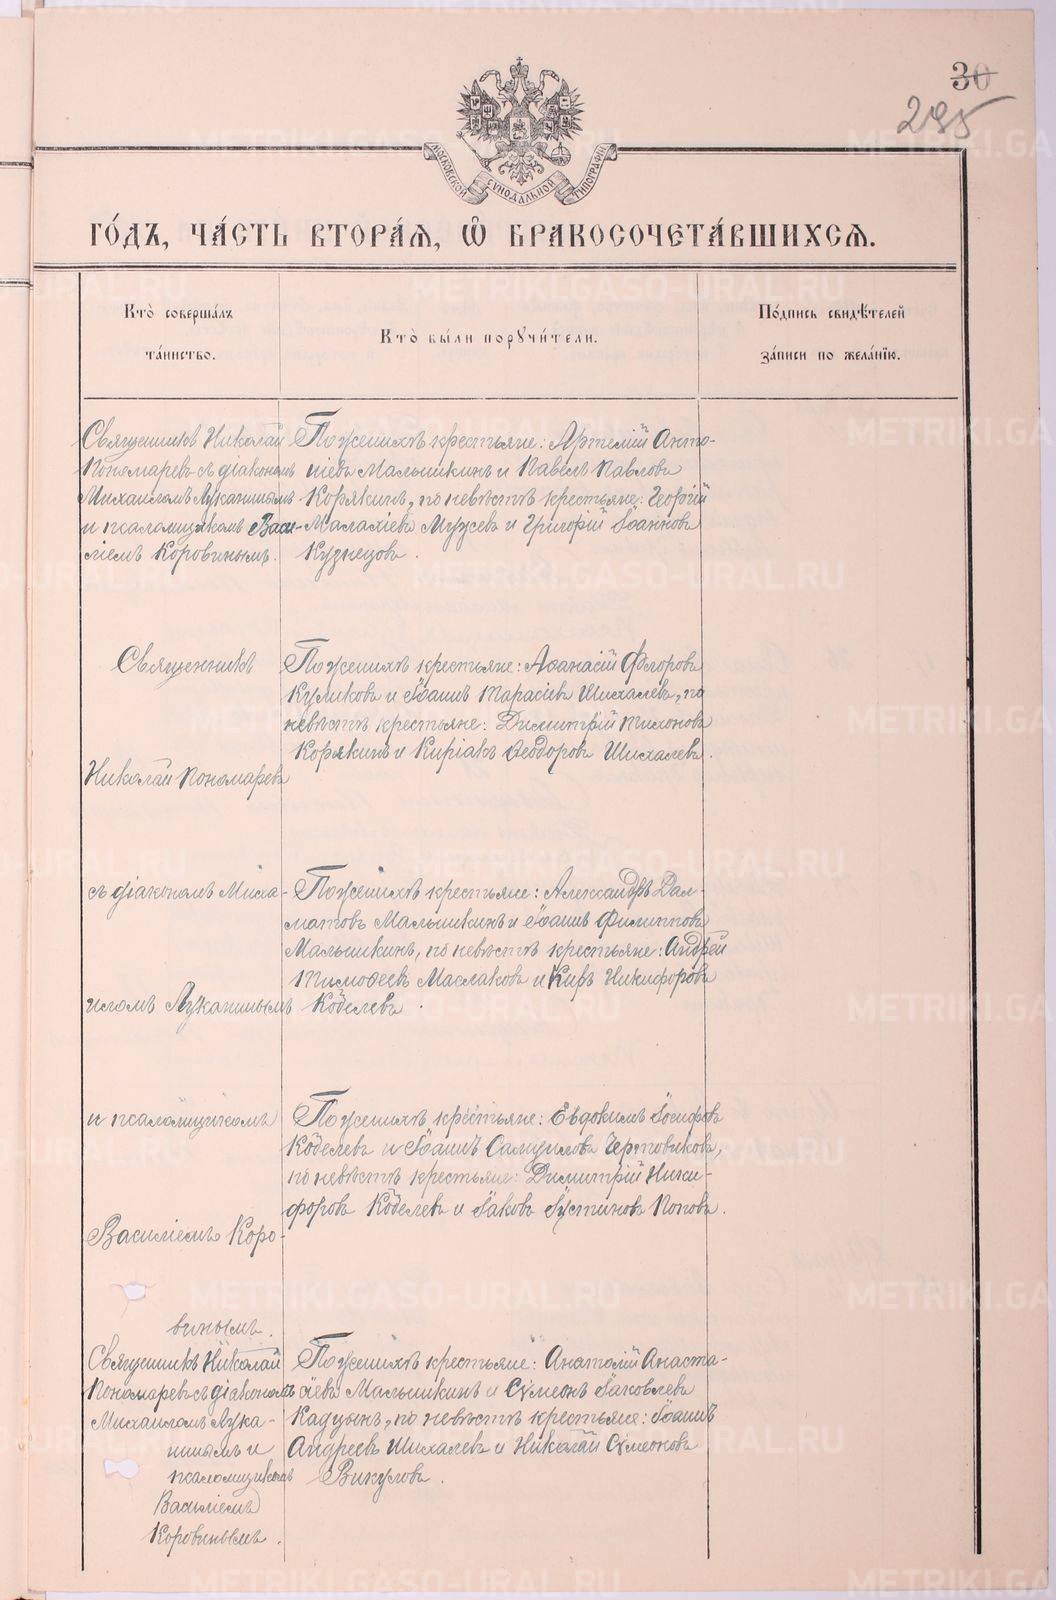 30
295
МОСКОВСКОЙ СѴНОДАЛЬНОЙ ТИПОГРАФІИ
ГО́ДЪ, ЧА́СТЬ ВТОРА́Я, Ѽ БРАКОСОЧЕТА́ВШИХСЯ.
Кто̀ соверша́лъ
та́инство.
Кто̀ бы́ли порꙋчи́тели.
По́дпись свидѣ́телей
за́писи по жела́нїю.
Священникъ Николай
Пономаревъ съ діакономъ
Михаиломъ Лукашнымъ
и псаломщикомъ Васи-
ліемъ Коровинымъ.
По женихѣ крестьяне: Артемій Анто-
ніевъ Малышкинъ и Павелъ Павловъ
Корякинъ, по невѣстѣ крестьяне: Георгій
Малахіевъ Мужевъ и Григорій Іоанновъ
Кузнецовъ.
Священникъ
Николай Пономаревъ
По женихѣ крестьяне: Аѳанасій Флоровъ
Куликовъ и Іоаннъ Тарасіевъ Шихалевъ, по
невѣстѣ крестьяне: Димитрій Тихоновъ
Корякинъ и Киріакъ Ѳеодоровъ Шихалевъ.
съ діакономъ Миха-
иломъ Лукашнымъ
По женихѣ крестьяне: Александръ Дал-
матовъ Малышкинъ и Іоаннъ Филипповъ
Малышкинъ, по невѣстѣ крестьяне: Андрей
Тимоѳеевъ Маслаковъ и Киръ Никифоровъ
Кобелевъ.
и псаломщикомъ
Василіемъ Коро-
виннымъ.
По женихѣ крестьяне: Евдокимъ Іосифовъ
Кобелевъ и Іоаннъ Самуиловъ Чертовиковъ,
по невѣстѣ крестьяне: Димитрій Ники-
форовъ Кобелевъ и Іаковъ Іустиновъ Поповъ.
Священникъ Николай
Пономаревъ съ діакономъ
Михаиломъ Лука-
шнымъ и
псаломщикомъ
Василіемъ
Коровинымъ.
По женихѣ крестьяне: Анатолій Анаста-
сіевъ Малышкинъ и Сѵмеонъ Іаковлевъ
Кадцынъ, по невѣстѣ крестьяне: Іоаннъ
Андреевъ Шихалевъ и Николай Сѵмеоновъ
Викуловъ.
METRIKI.GASO-URAL.RU